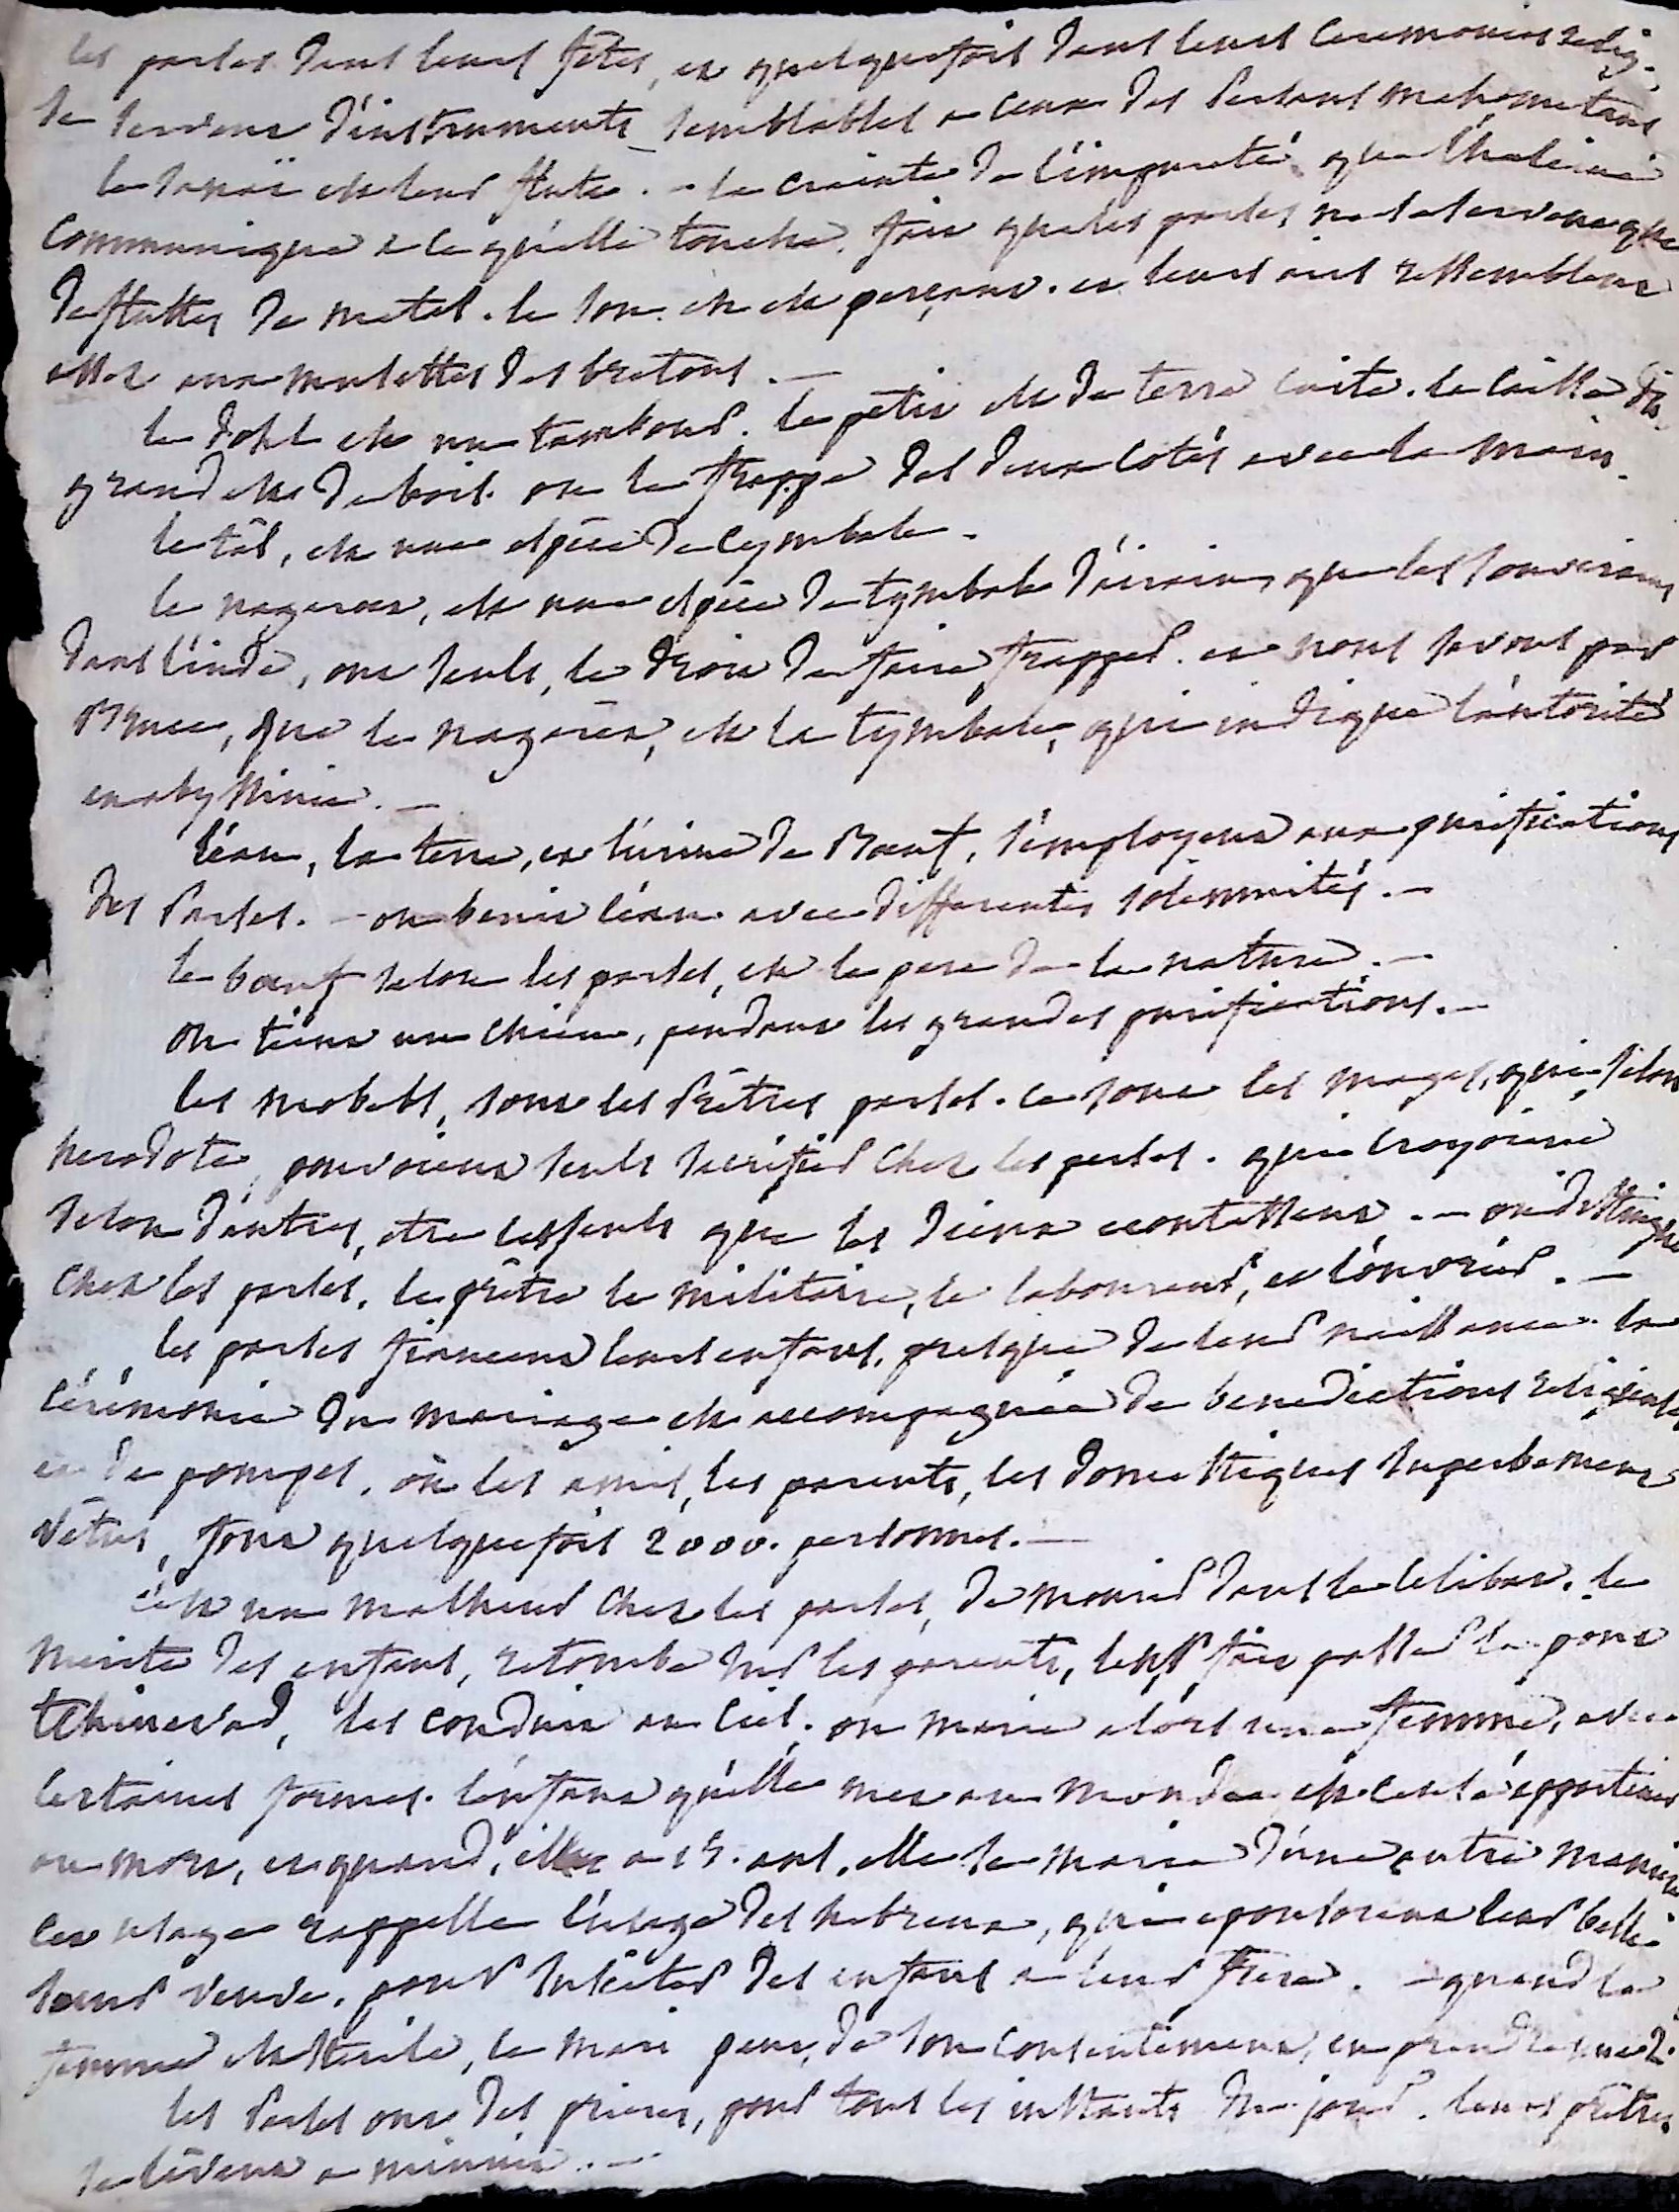 les parses dans leurs fêtes, et quelquefois dans leurs ceremonies relig.
se servent d'instruments semblables a ceux des Persans mahometans
le sanaï est leur flute. - la crainte de l'impureté que l'haleine
communique a ce qu'elle touche, fait que les parses ne se servent que
de fluttes de metal. le son en est perçant. et leurs airs ressemblent
assez aux musettes des bretons. -
le dohl est un tambour. le petit est de terre cuite. la caisse du
grand est de bois. on le frappe des deux cotés avec la main.
le tâl, est une espece de cymbale.
le nagaraa, est une espece de tymbale d'airain, que les souverains
dans l'inde, ont seuls, le droit de faire frapper. et nous savons par
Bruce, que le nagarea, est la tymbale, qui indique l'autorité
en abyssinie. -
l'eau, la terre, et l'urine de Boeuf, s'employent aux purifications
des Parses. - on benit l'eau avec differentes solemnités. -
le boeuf selon les parses, est le pere de la nature. -
on tient un chien, pendant les grandes purifications. -
les mobeds, sont les Prêtres parses. ce sont les mages, qui selon
herodote, pouvoient seuls sacrifier chez les perses. qui croyoient
selon d'autres, etre les seuls que les dieux ecoutassent. - on distingue
chez les parses, le prêtre le militaire, le laboureur, et l'ouvrier. -
les parses fiancent leurs enfans, presque de leur naissance. la
cérémonie du mariage est accompagnée de benedictions religieuses
et de pompes, où les amis, les parents, les domestiques superbement
vêtus, font quelquefois 2000. personnes. -
c'est un malheur chez les parses, de mourir dans le celibat. le
merite des enfans, retombe sur les parents, leur fait passer le pont
tchinevad, les conduit au ciel. on marie alors une femme, avec
certaines formes. l'enfant qu'elle met au monde est censé appartenir
au mort, et quand, il a 15. ans, elle se marie d'une autre maniere
cet usage rappelle l'usage des hebreux, qui epousoient leur belle
soeur veuve, pour susciter des enfans a leur frere. - quand la
femme est sterile, le mari peut, de son consentement, en prendre une 2.
les Parses ont des prieres, pour tous les instants du jour. leurs prêtres
se lêvent a minuit. -